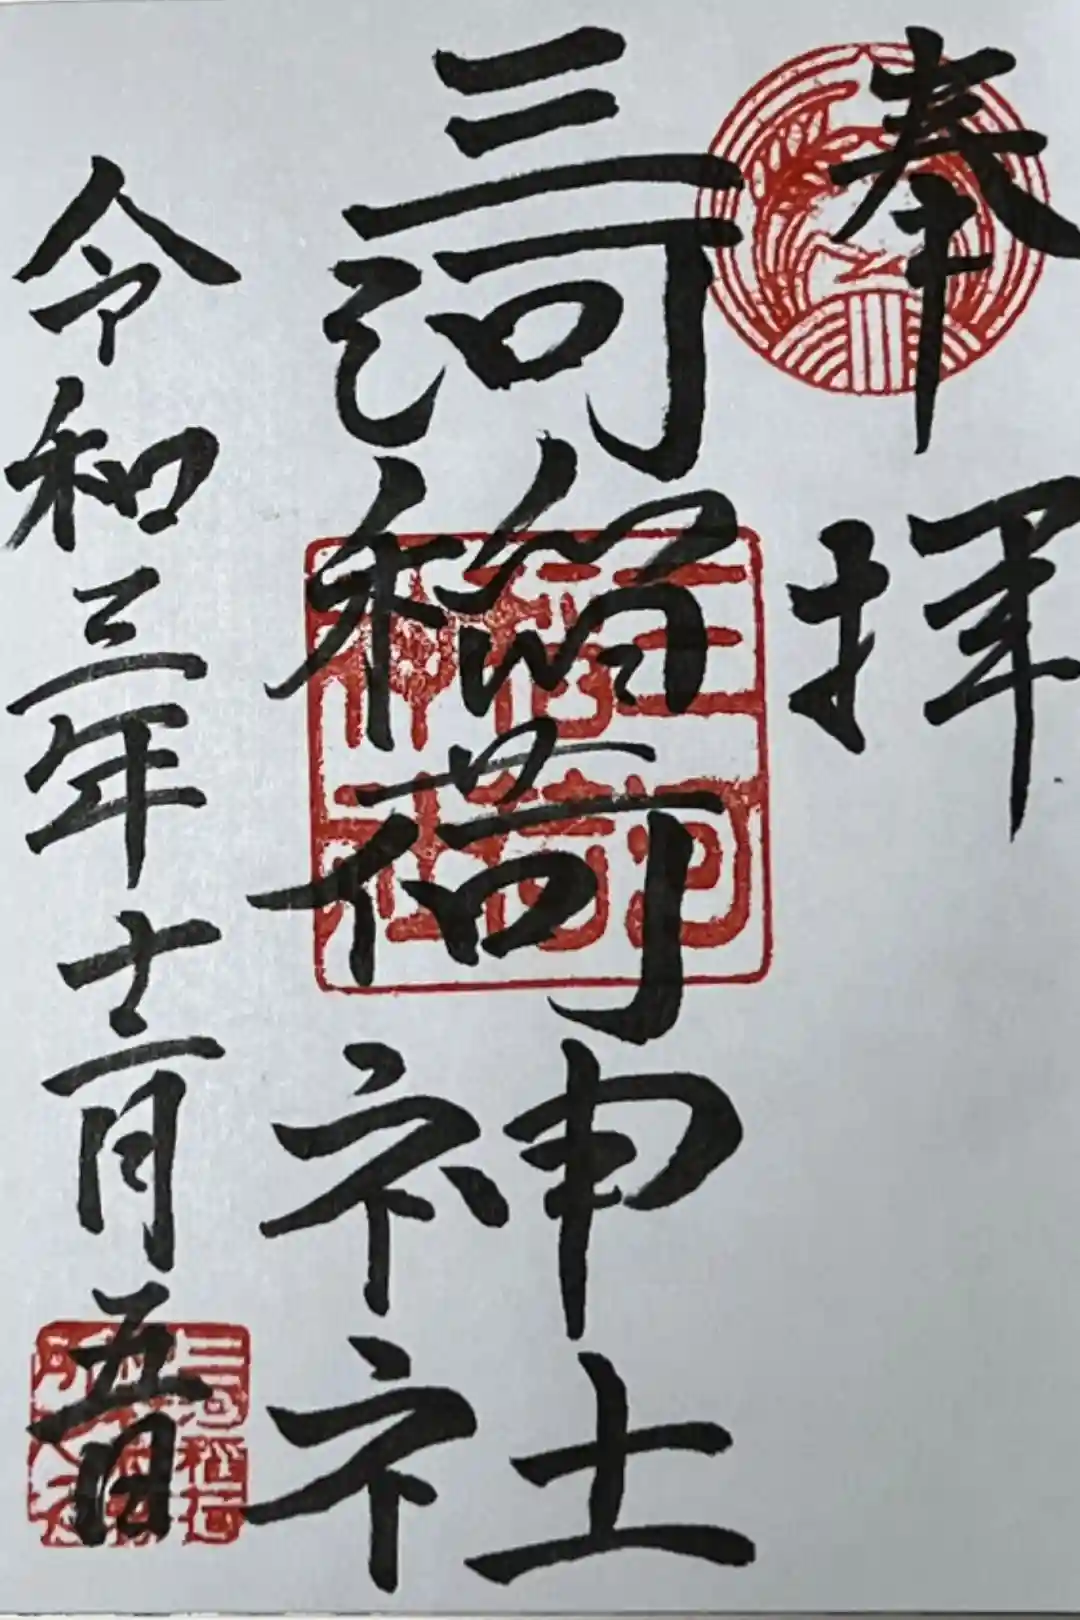 奉拝
三河稲荷神社
令和三年十二月五日
三河稲荷神社
三河稲荷